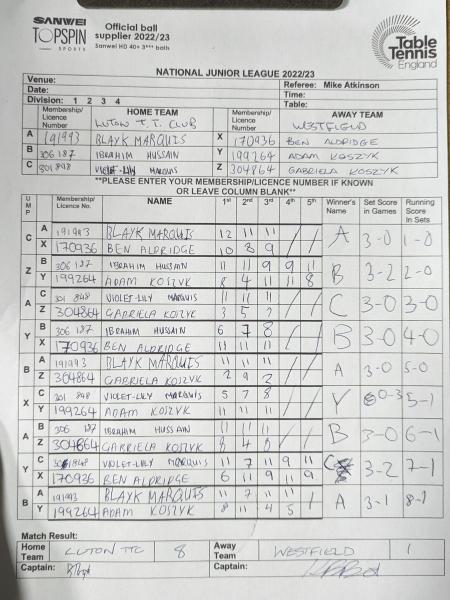 SANWEI
TOPSPIN
SPORTS
Official ball
supplier 2022/23
Sanwei HD 40+ 3*** ball
Table
Tennis
England
NATIONAL JUNIOR LEAGUE 2022/23
Venue: Referee: Mike Atkinson
Date: Time:
Division: 1 2 3 4 Table:
Membership/ Licence Number HOME TEAM Membership/ Licence Number AWAY TEAM
LUTON T.T. CLUB WESTFIELD
A 191993 BLAYK MARQUIS X 170936 BEN ALDRIDGE
B 306187 IBRAHIM HUSSAIN Y 199264 ADAM KOSZYK
C 301848 VIOLET-LILY MARQUIS Z 304864 GABRIELA KOSZYK
**PLEASE ENTER YOUR MEMBERSHIP/LICENCE NUMBER IF KNOWN
OR LEAVE COLUMN BLANK**
UMP Membership/ Licence No. NAME 1st 2nd 3rd 4th 5th Winner's Name Set Score in Games Running Score In Sets
C A 191993 BLAYK MARQUIS 12 11 11 / / A 3-0 1-0
X 170936 BEN ALDRIDGE 10 8 9
Z B 306187 IBRAHIM HUSSAIN 11 11 9 9 11 B 3-2 2-0
Y 199264 ADAM KOSZYK 8 4 11 11 8
A C 301 848 VIOLET-LILY MARQUIS 11 11 11 / / C 3-0 3-0
Z 304864 GABRIELA KOSZYK 3 5 2
Y B 306187 IBRAHIM HUSSAIN 6 7 8 / / B 3-0 4-0
X 170936 BEN ALDRIDGE 11 11 11
B A 191993 BLAYK MARQUIS 11 11 11 / / A 3-0 5-0
Z 304864 GABRIELA KOSZYK 2 9 2
X C 301 848 VIOLET-LILY MARQUIS 5 7 8 / / Y 0-3 5-1
Y 199264 ADAM KOSZYK 11 11 11
A B 306 187 IBRAHIM HUSSAIN 11 11 11 / / B 3-0 6-1
Z 304864 GABRIELA KOSZYK 8 4 8
Y C 301848 VIOLET-LILY MARQUIS 11 7 11 9 11 C 3-2 7-1
X 170936 BEN ALDRIDGE 6 11 9 11 9
B A 191993 BLAYK MARQUIS 11 7 11 11 / A 3-1 8-1
Y 199264 ADAM KOSZYK 8 11 4 5
Match Result:
Home Team LUTON TTC 8 Away Team WESTFIELD 1
Captain: Captain: